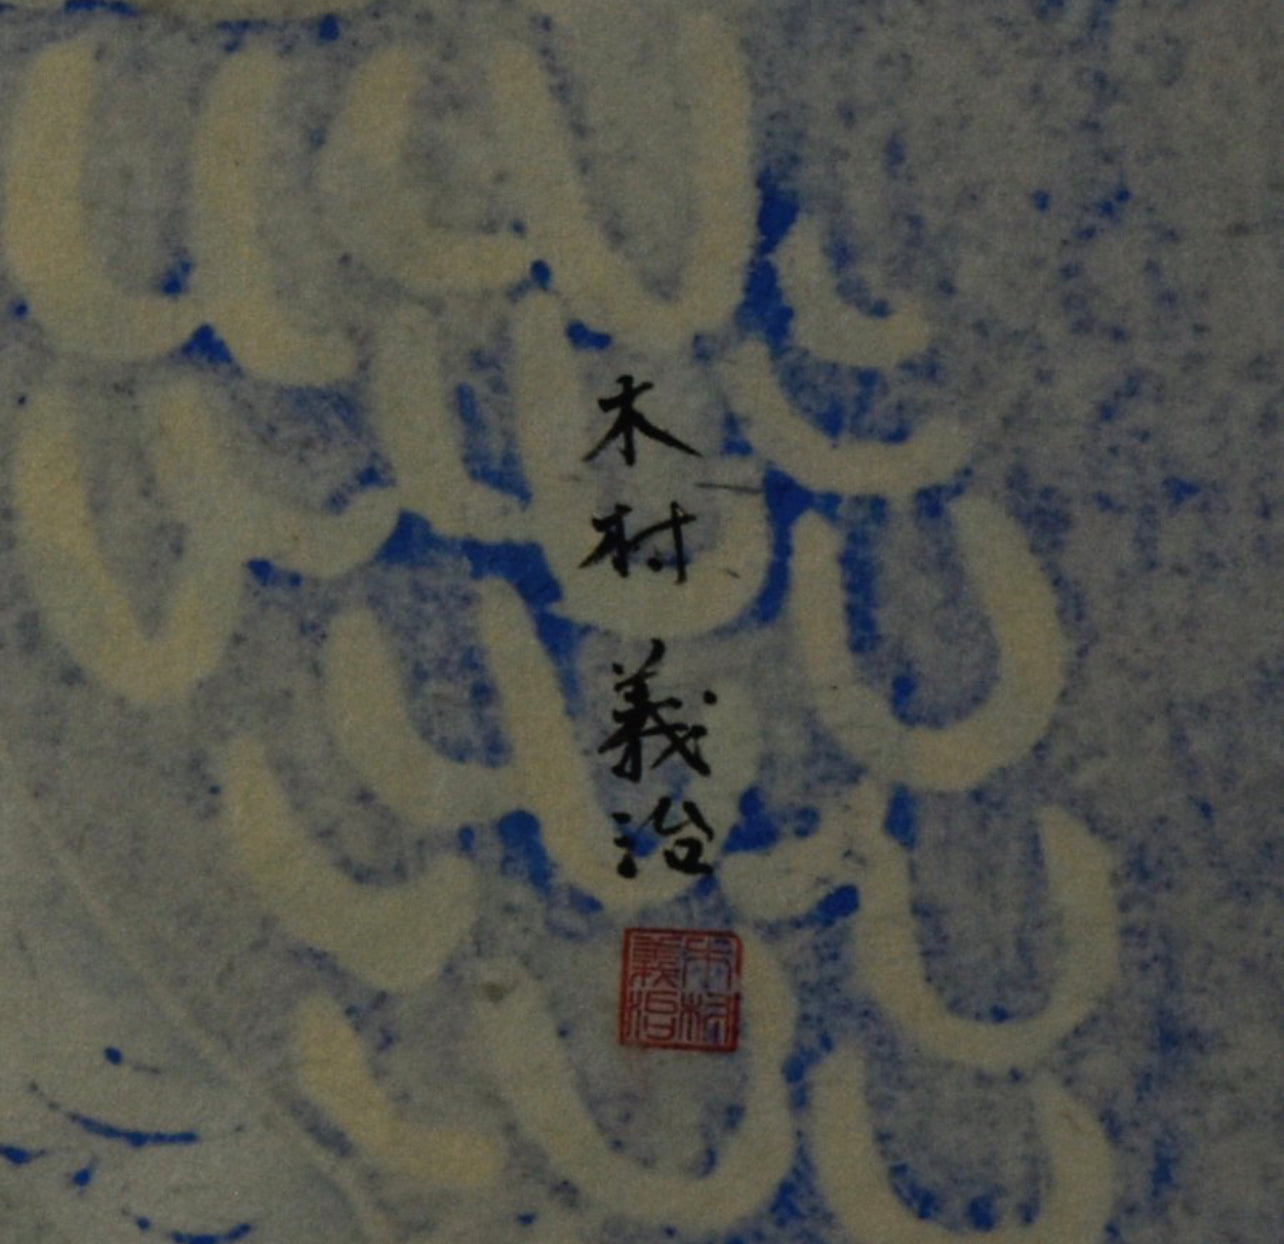 木村義治
木村
義治